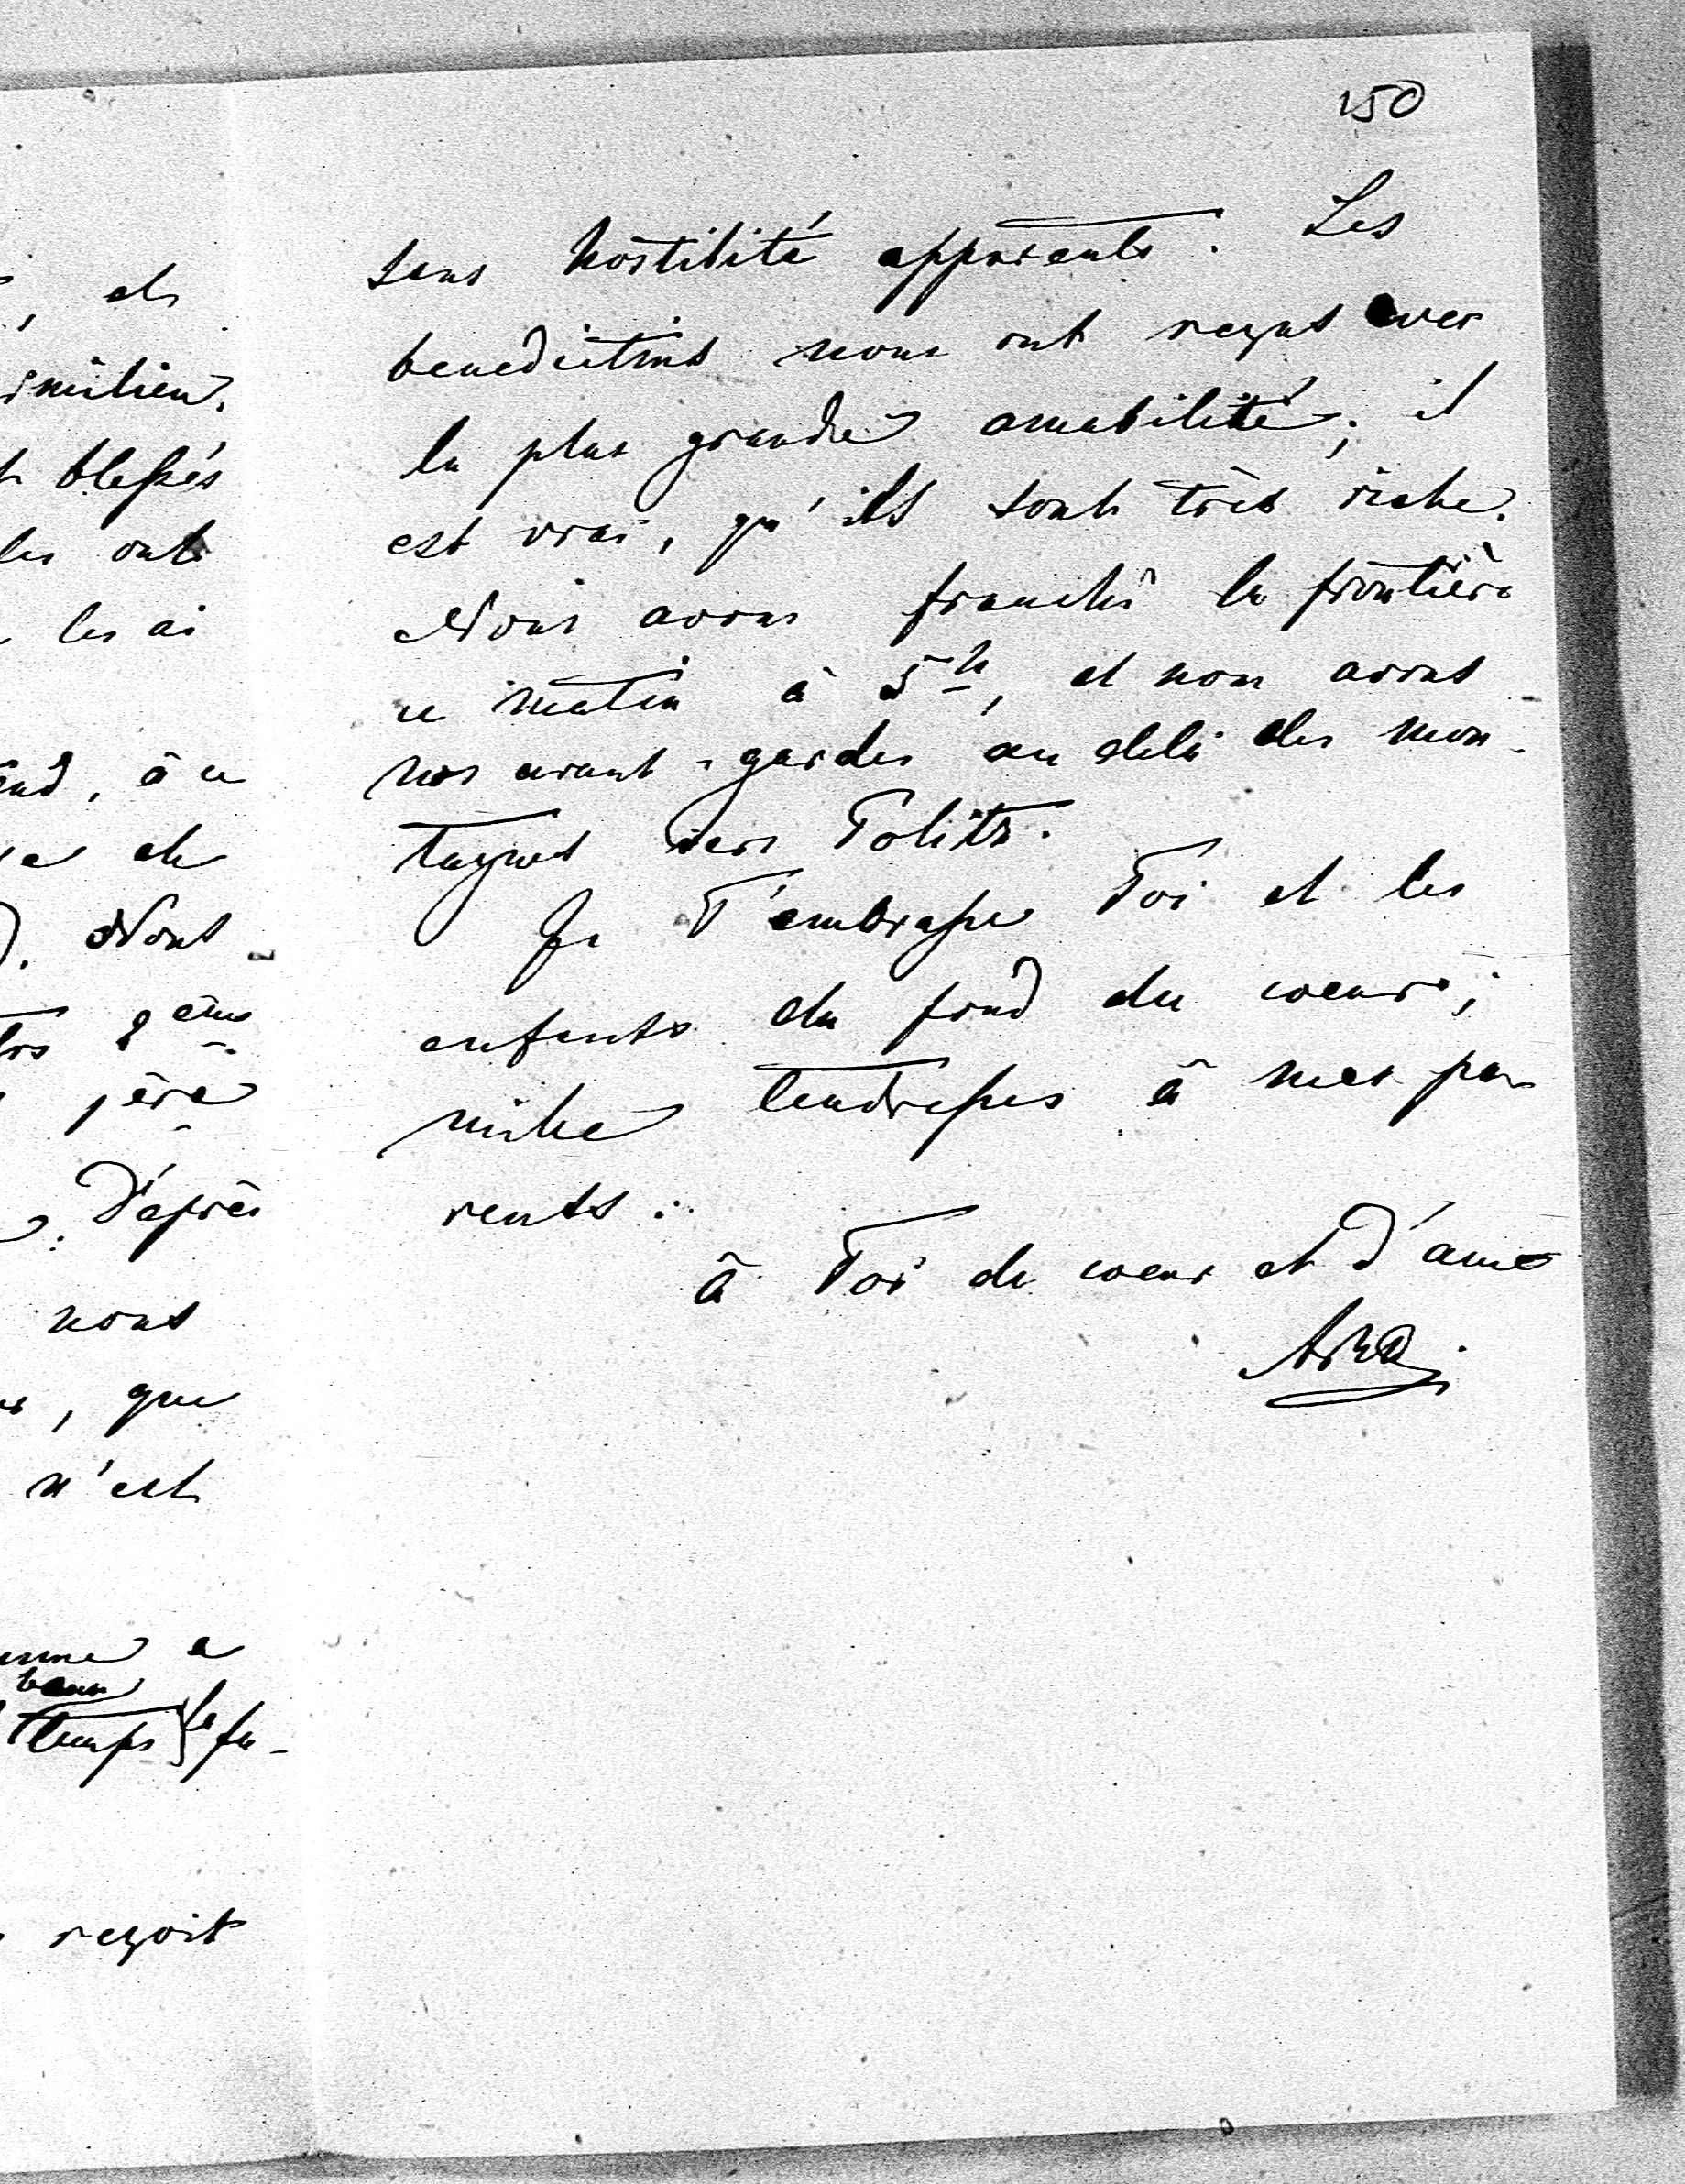 150
sans hostilité apparente. Les
benedictins nous ont reçus avec
la plus grande amabilité; il
est vrai, qu'ils sont très riche.
Nous avons franchi la frontière
ce matin à 5h, et nous avons
nos avant-gardes au delà des mon-
tagnes vers Politz.
Je T'embrasse Toi et les
enfants du fond du coeur;
mille tendresses à mes pa-
rents.
à Toi de coeur et d'ame
et
milien.
blessés
les ont
les ai
, à ce
de
Nous
8ème
1ère
D'après
nous
, que
n'est
a
beau
temps se fu-
reçoit